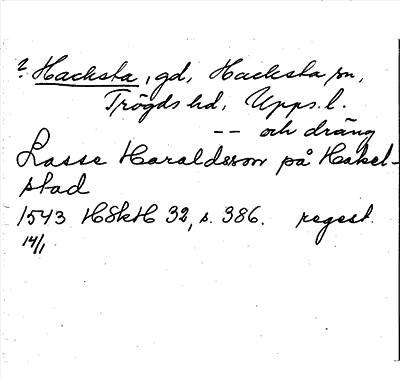 ? Hacksta, gd, Hacksta sn,
Trögds hd, Upps. l.
-- och dräng
Lasse Haraldsson på Hakel-
stad
1543 HSkH 32, s. 386. regest.
14/1